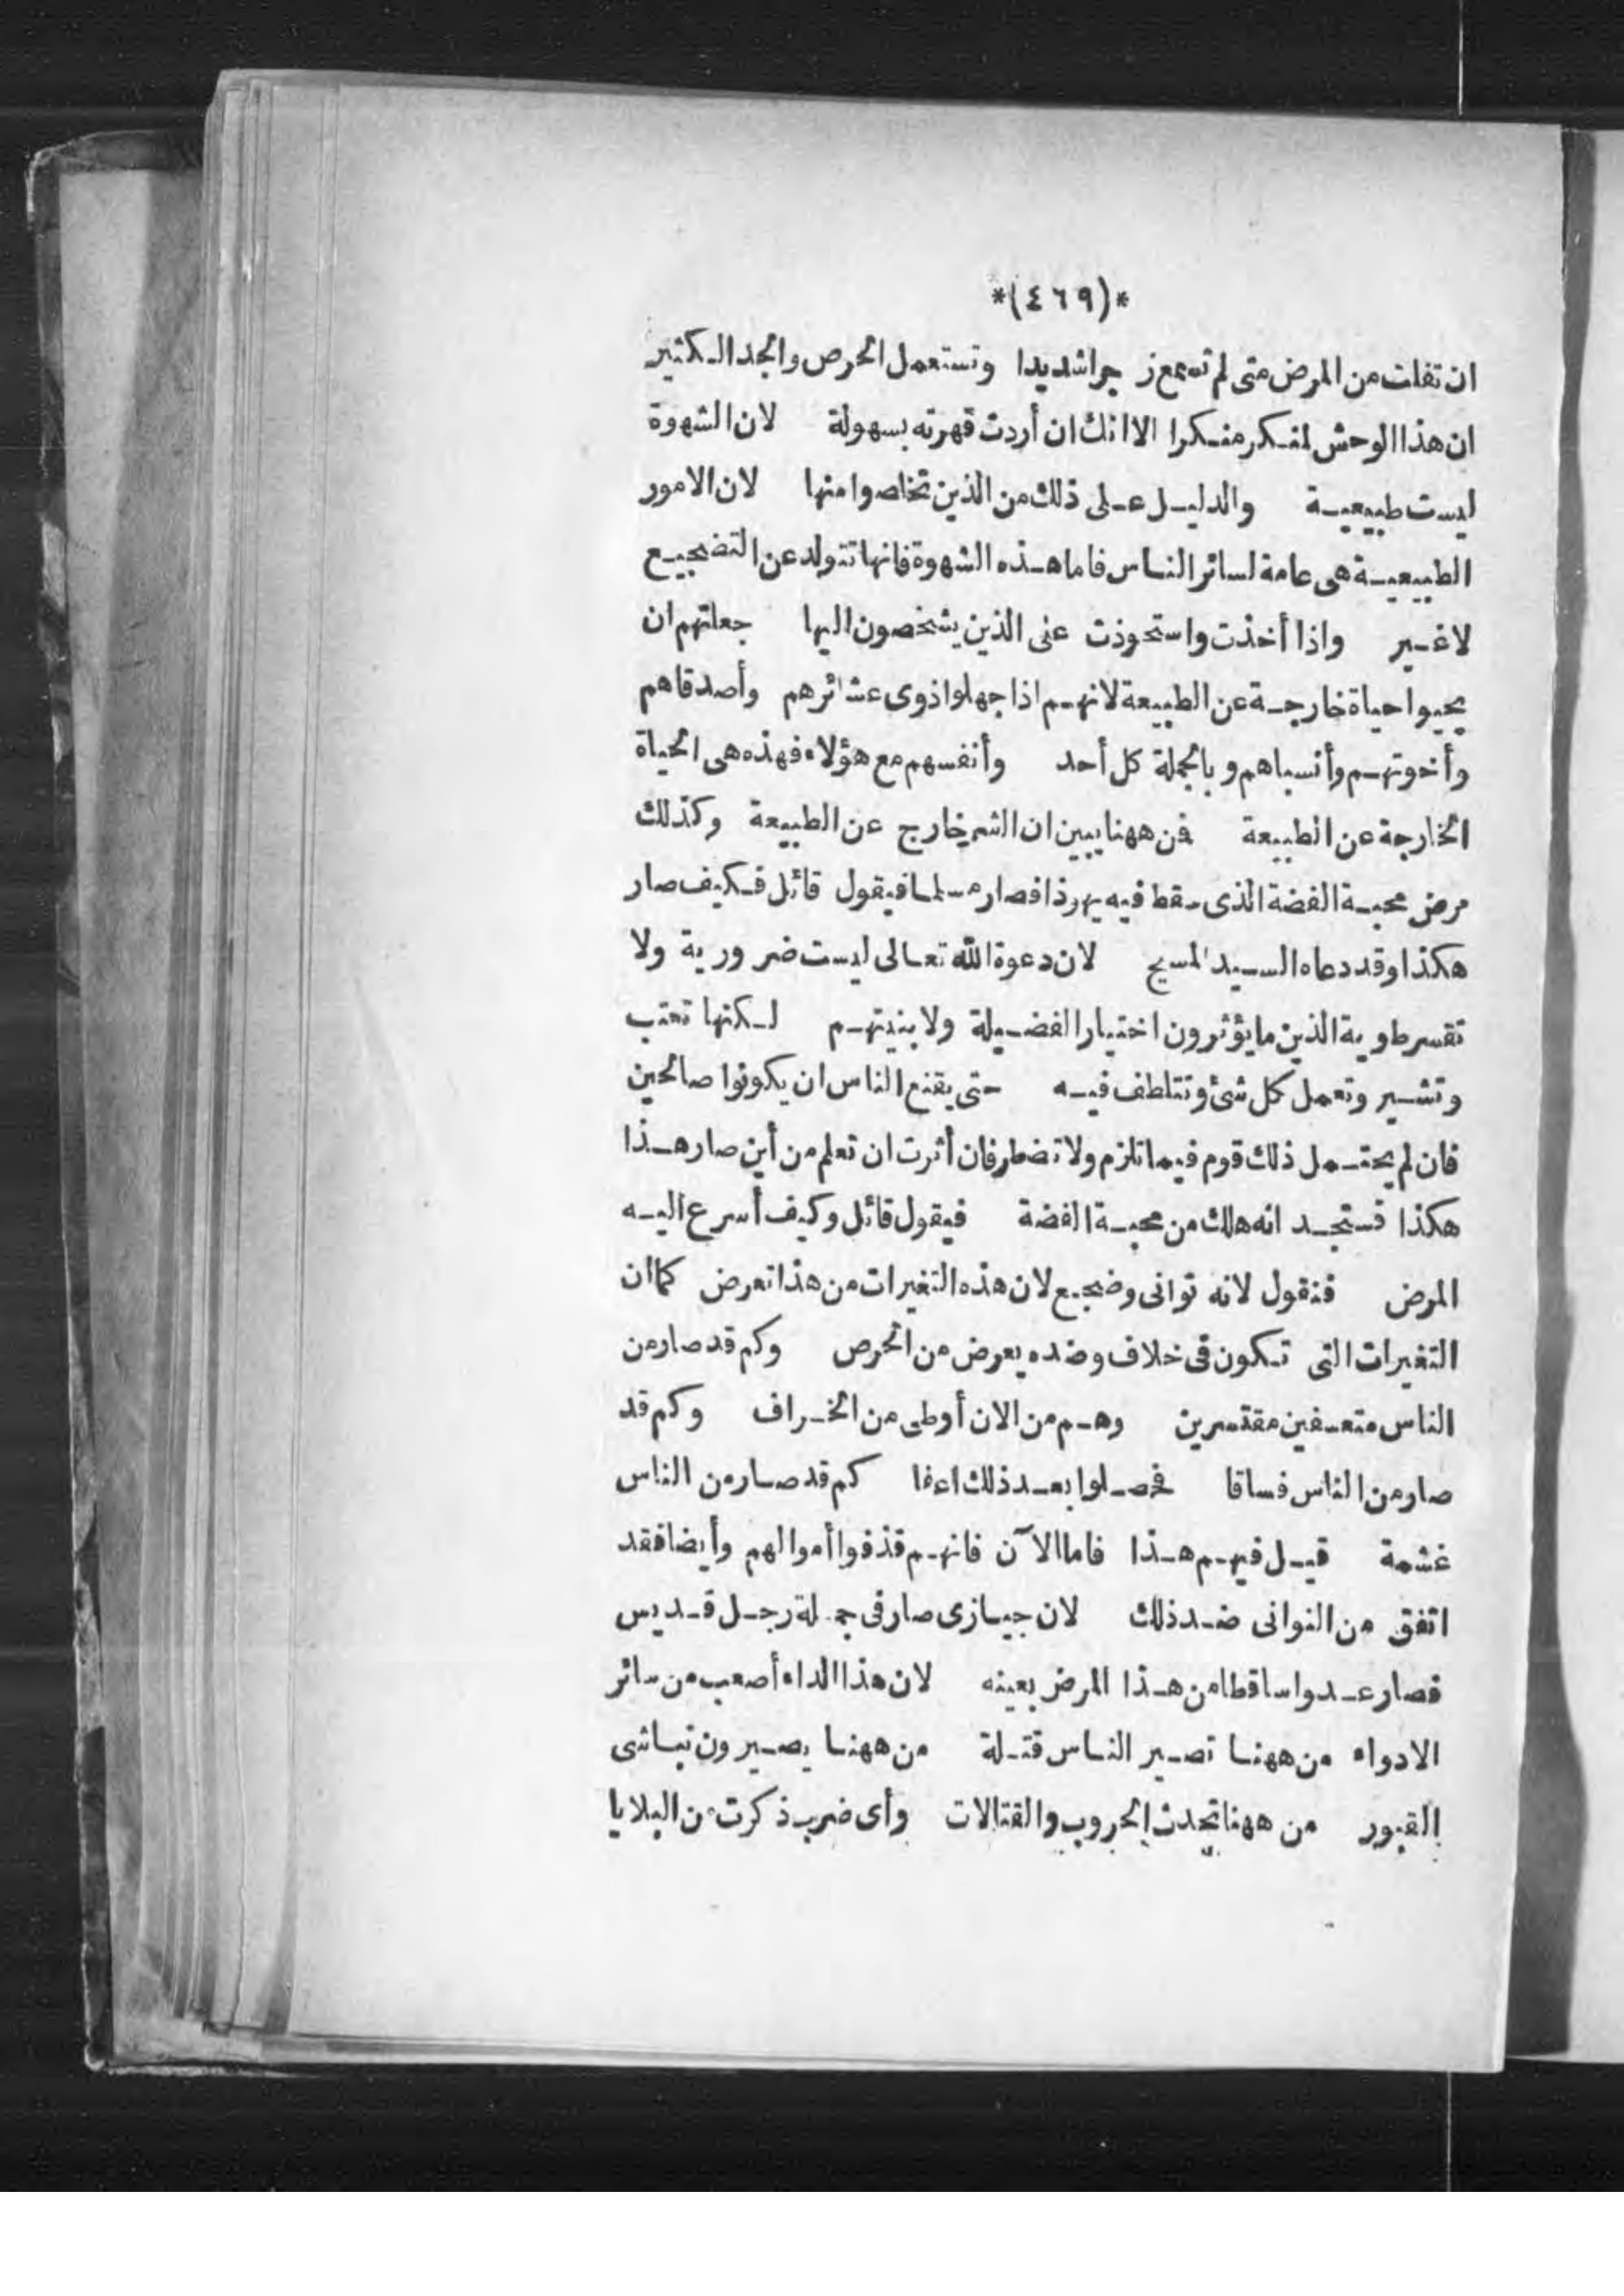 *(٤٦٩)*
ان تفلت من المرض متى لم تسمع زجرا شديدا وتستعمل الحرص والجد الكثير
ان هذا الوحش لمنكر منكرا الا انك ان أردت قهرته بسهولة لان الشهوة
ليست طبيعية والدليل على ذلك من الذين تخلصوا منها لان الامور
الطبيعية هى عامة لسائر الناس فاما هذه الشهوة فانها تتولد عن التضجيع
لا غير واذا أخذت واستحوذت على الذين يشخصون اليها جعلتهم ان
يحيوا حياة خارجة عن الطبيعة لانهم اذا جهلوا ذوى عشائرهم وأصدقاهم
وأخوتهم وأنسباهم وبالجملة كل أحد وأنفسهم مع هؤلاء فهذه هى الحياة
الخارجة عن الطبيعة فمن ههنا يبين ان الشر خارج عن الطبيعة وكذلك
مرض محبة الفضة الذى سقط فيه يهوذا فصار مسلما فيقول قائل فكيف صار
هكذا وقد دعاه السيد المسيح لان دعوة الله تعالى ليست ضرورية ولا
تقسر طوية الذين ما يؤثرون اختيار الفضيلة ولا بنيتهم لكنها تعتب
وتشير وتعمل كل شئ وتتلطف فيه حتى يقنع الناس ان يكونوا صالحين
فان لم يحتمل ذلك قوم فيما تلزم ولا تضطر فان أثرت ان تعلم من أين صار هذا
هكذا فستجد انه هلك من محبة الفضة فيقول قائل وكيف أسرع اليه
المرض فنقول لانه توانى وضجع لان هذه التغيرات من هذا تعرض كما ان
التغيرات التى تكون فى خلاف وضده يعرض من الحرص وكم قد صار من
الناس متعسفين مقتسرين وهم من الان أوطى من الخراف وكم قد
صار من الناس فساقا فحصلوا بعد ذلك اعفا كم قد صار من الناس
غشمة قيل فيهم هذا فاما الآن فانهم قذفوا أموالهم وأيضا فقد
اتفق من التوانى ضد ذلك لان جيازى صار فى جملة رجل قديس
فصار عدوا ساقطا من هذا المرض بعينه لان هذا الداء أصعب من سائر
الادواء من ههنا تصير الناس قتلة من ههنا يصيرون نباشى
القبور من ههنا تحدث الحروب والقتالات وأى ضرب ذكرت من البلايا